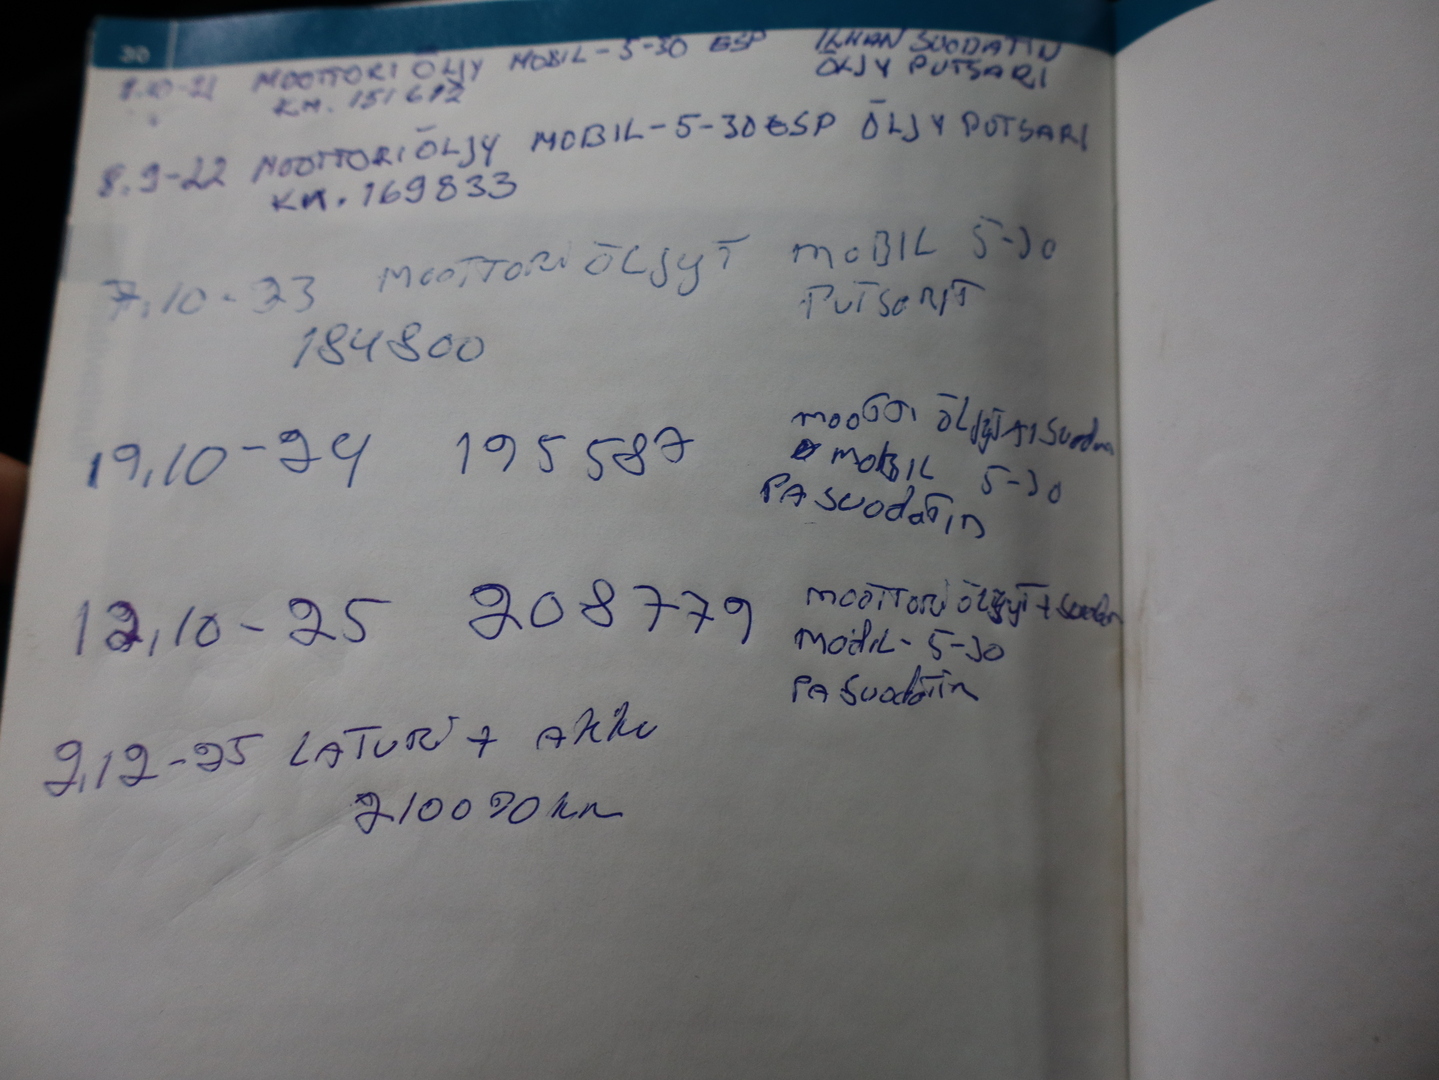 30
8.10-21 MOOTTORI ÖLJY MOBIL-5-30 ESP ILMAN SUODATIN
KM. 151612 ÖLJY PUTSARI
8.9-22 MOOTTORI ÖLJY MOBIL-5-30 ESP ÖLJY PUTSARI
KM. 169833
7.10-23 MOOTTORI ÖLJYT MOBIL 5-30
184800 PUTSARIT
19.10-24 195587 ÖLJYT
MOBIL 5-30
PA SUODATIN
12.10-25 208779 MOOTTORI ÖLJYT +
MOBIL-5-30
PA SUODATIN
2.12-25 LATURI + AKKU
210090 km